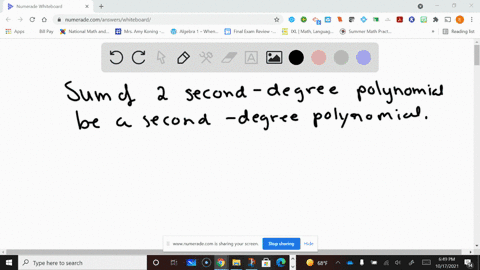 Numerade Whiteboard
numerade.com/answers/whiteboard/
Apps
Bill Pay
National Math and ...
Mrs. Amy Koning - ...
Algebra 1 - When...
Final Exam Review -...
IXL | Math, Languag...
Summer Math Pract...
Reading list
Sum of 2 second-degree polynomial
be a second-degree polynomial.
www.numerade.com is sharing your screen.
Stop sharing
Hide
Type here to search
68°F
6:49 PM
10/17/2021